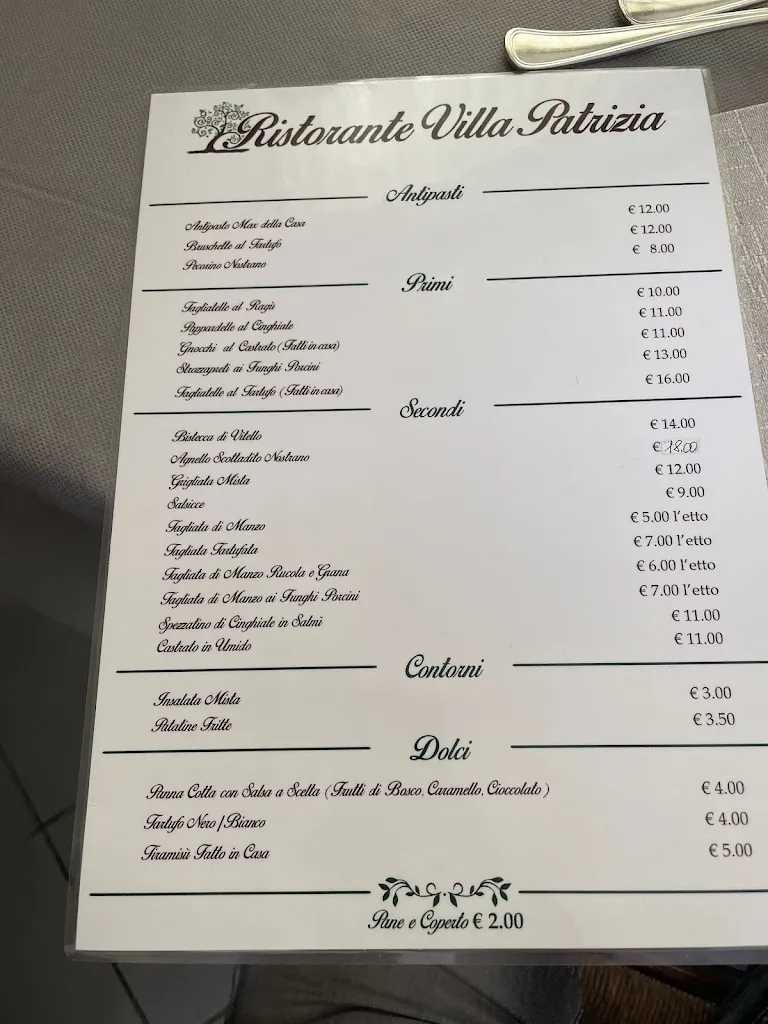 Ristorante Villa Patrizia
Antipasti
Antipasto Max della Casa € 12.00
Bruschette al Tartufo € 12.00
Pecorino Nostrano € 8.00
Primi
Tagliatelle al Ragù € 10.00
Pappardelle al Cinghiale € 11.00
Gnocchi al Castrato (Fatti in casa) € 11.00
Strozzapreti ai Funghi Porcini € 13.00
Tagliatelle al Tartufo (Fatti in casa) € 16.00
Secondi
Bistecca di Vitello € 14.00
Agnello Scottadito Nostrano € 18.00
Grigliata Mista € 12.00
Salsicce € 9.00
Tagliata di Manzo € 5.00 l'etto
Tagliata Tartufata € 7.00 l'etto
Tagliata di Manzo Rucola e Grana € 6.00 l'etto
Tagliata di Manzo ai Funghi Porcini € 7.00 l'etto
Spezzatino di Cinghiale in Salmì € 11.00
Castrato in Umido € 11.00
Contorni
Insalata Mista € 3.00
Patatine Fritte € 3.50
Dolci
Panna Cotta con Salsa a Scelta (Frutti di Bosco, Caramello, Cioccolato) € 4.00
Tartufo Nero / Bianco € 4.00
Tiramisù Fatto in Casa € 5.00
Pane e Coperto € 2.00